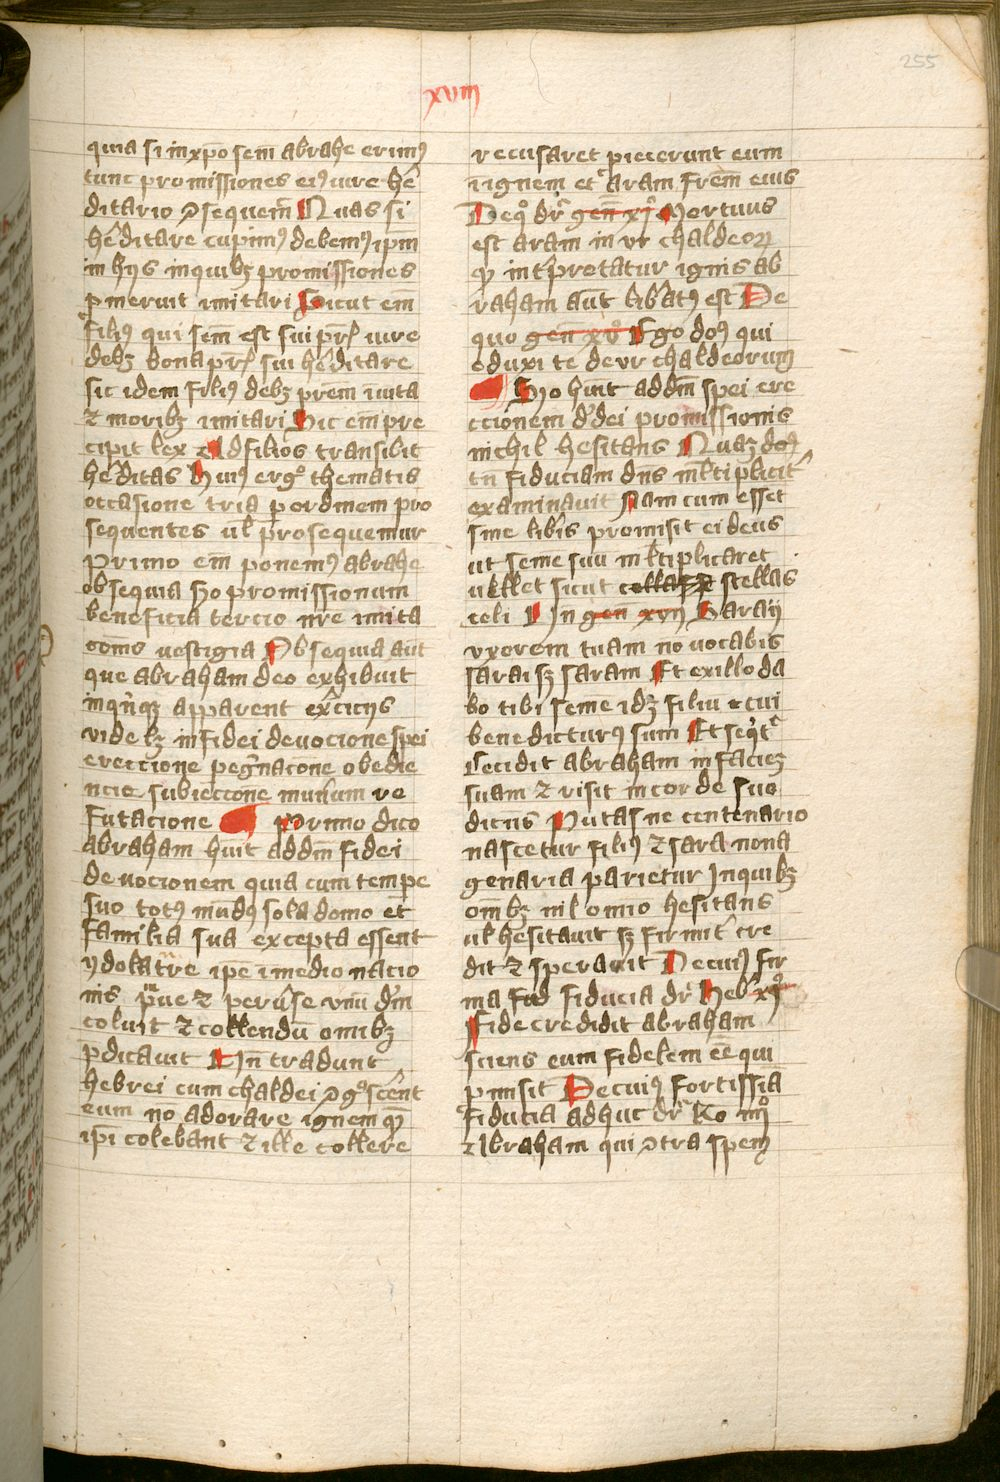 255
xviij
quia si in xp̄o sem̄ abrahe erimꝰ
tunc promissiones eiꝰ iure he᷑
ditario ꝯsequem̄ Quas si
he᷑ditare cupimꝰ debemꝰ ip̄m
in hijs in quibꝫ promissiones
ꝓmeruit imitari Sicut em̄
filiꝰ qui sem̄ est sui pr̄ſ iure
debꝫ bona pr̄ſ sui he᷑ditare
sic idem filiꝰ debꝫ prēm in uita
⁊ moribꝫ imitari Hic em̄ pre
cipit lex Ad filios transibit
he᷑ditas Huiꝰ ergͦ thematis
occasione tria ꝑ ordinem pro
sequentes ul̄ prosequemur
Primo em̄ ponemꝰ abrahe
obsequia s̄o promissionum
beneficia tercio nr̄e imita
com̄s uestigia Obsequia aūt
que abraham deo exhibuit
in qn̄qꝫ apparent exc᷑icijs
videlꝫ in fidei deuocione spei
ereccione peg᷑nac̄one obedie
ncie subieccone mun᷑um re
futacione Primo dico
abraham hūit ad dm̄ fidei
deuocionem quia cum tempe
suo totꝰ mūdꝰ sola domo et
familia sua excepta essent
ydolatre ipe ī medio nacio
nis praue ⁊ peru᷑se vnū dm̄
coluit ⁊ collendū omibꝫ
p̄dicauit Vn̄ tradunt
hebrei cum chaldei ꝯgͦscent᷑
eum nō adorare ignem qm̄
ip̄i colebant ⁊ ille collere
recusaret piecerunt eum
ī ignem et aram frēm eius
De qͦ dr̄ gen̄ xjͦ Mortuus
est aram in vr chaldeoꝝ
qͩ int᷑pretatur ignis ab
raham aūt lib᷑atꝰ est De
quo gen̄ xvͦ Ego dn̄s qui
eduxi te de vr chaldeorum
S̄o hūit ad dm̄ spei ere
ccionem d᷑ dei promissionis
nichil hesitans Quaꝫ
tn̄ fiduciam dn̄s ml̄tiplicit᷑
examinauit Nam cum esset
sine lib᷑is promisit ei deus
ut semē suū ml̄tiplicaret
uellet sicut stellas
celi Vn̄ gen̄ xvij Saraij
vxorem tuam nō vocabis
sarai sꝫ saram Et ex illo da
bo tibi semē idꝫ filiū cui
benedicturꝰ sum Et seqͥt᷑
Cecidit abraham in facieꝫ
suam ⁊ risit in corde suo
dicēs Putas ne centenario
nascetur filiꝰ ⁊ sara nona
genaria parietur In quibꝫ
om̄bꝫ nil omīo hesitans
ul̄ hesitauit sꝫ firmit᷑ cre
dit ⁊ sperauit De cuiꝰ fir
ma fiducia dr̄ Heb᷑ xjͦ
Fide credidit abraham
sciens eum fidelem ēē qui
ꝓmisit De cuiꝰ fortissīa
fiducia adhuc dr̄ Ro iiijͦ
Abraham qui ꝯtra spem